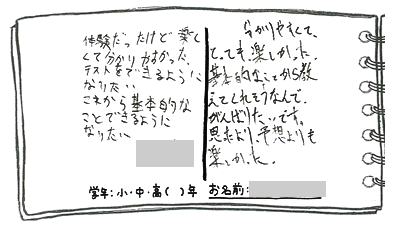 体験だったけど楽し
くて分かりやすかった
テストをできるように
なりたい
これから基本的な
ことできるように
なりたい
分かりやすくて、
とっても楽しかった。
基本的なことから教
えてくれそうなんで、
がんばりたいです。
思たより、予想よりも
楽しかった。
学年:小・中・高( )年 お名前: